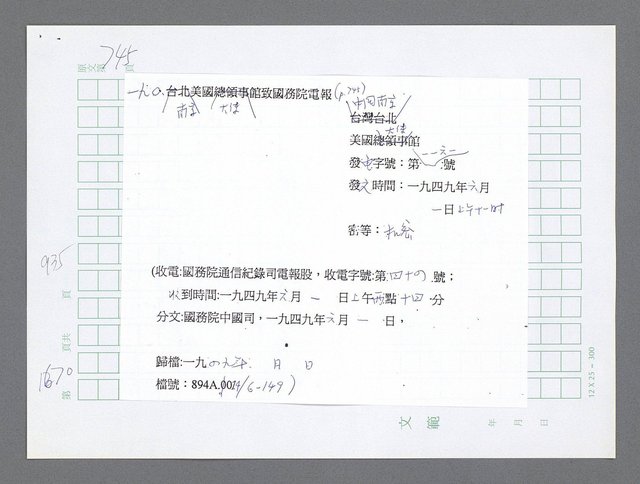 745
原文第 頁
一九〇.台北美國總領事館致國務院電報(p.745)
南京 大使
中国南京
台灣台北
大使
美國總領事館
發电字號：第一一六一號
發文時間：一九四九年六月
一日上午十一時
密等：机密
935
(收電:國務院通信紀錄司電報股，收電字號:第四十(4)號；
收到時間:一九四九年六月一日上午两點十四分
分文:國務院中國司，一九四九年六月一日，
頁
頁共
歸檔:一九四九年 月 日
檔號：894A.00(
/6-149)
1670
第
12 X 25 = 300
文範
年 月 日